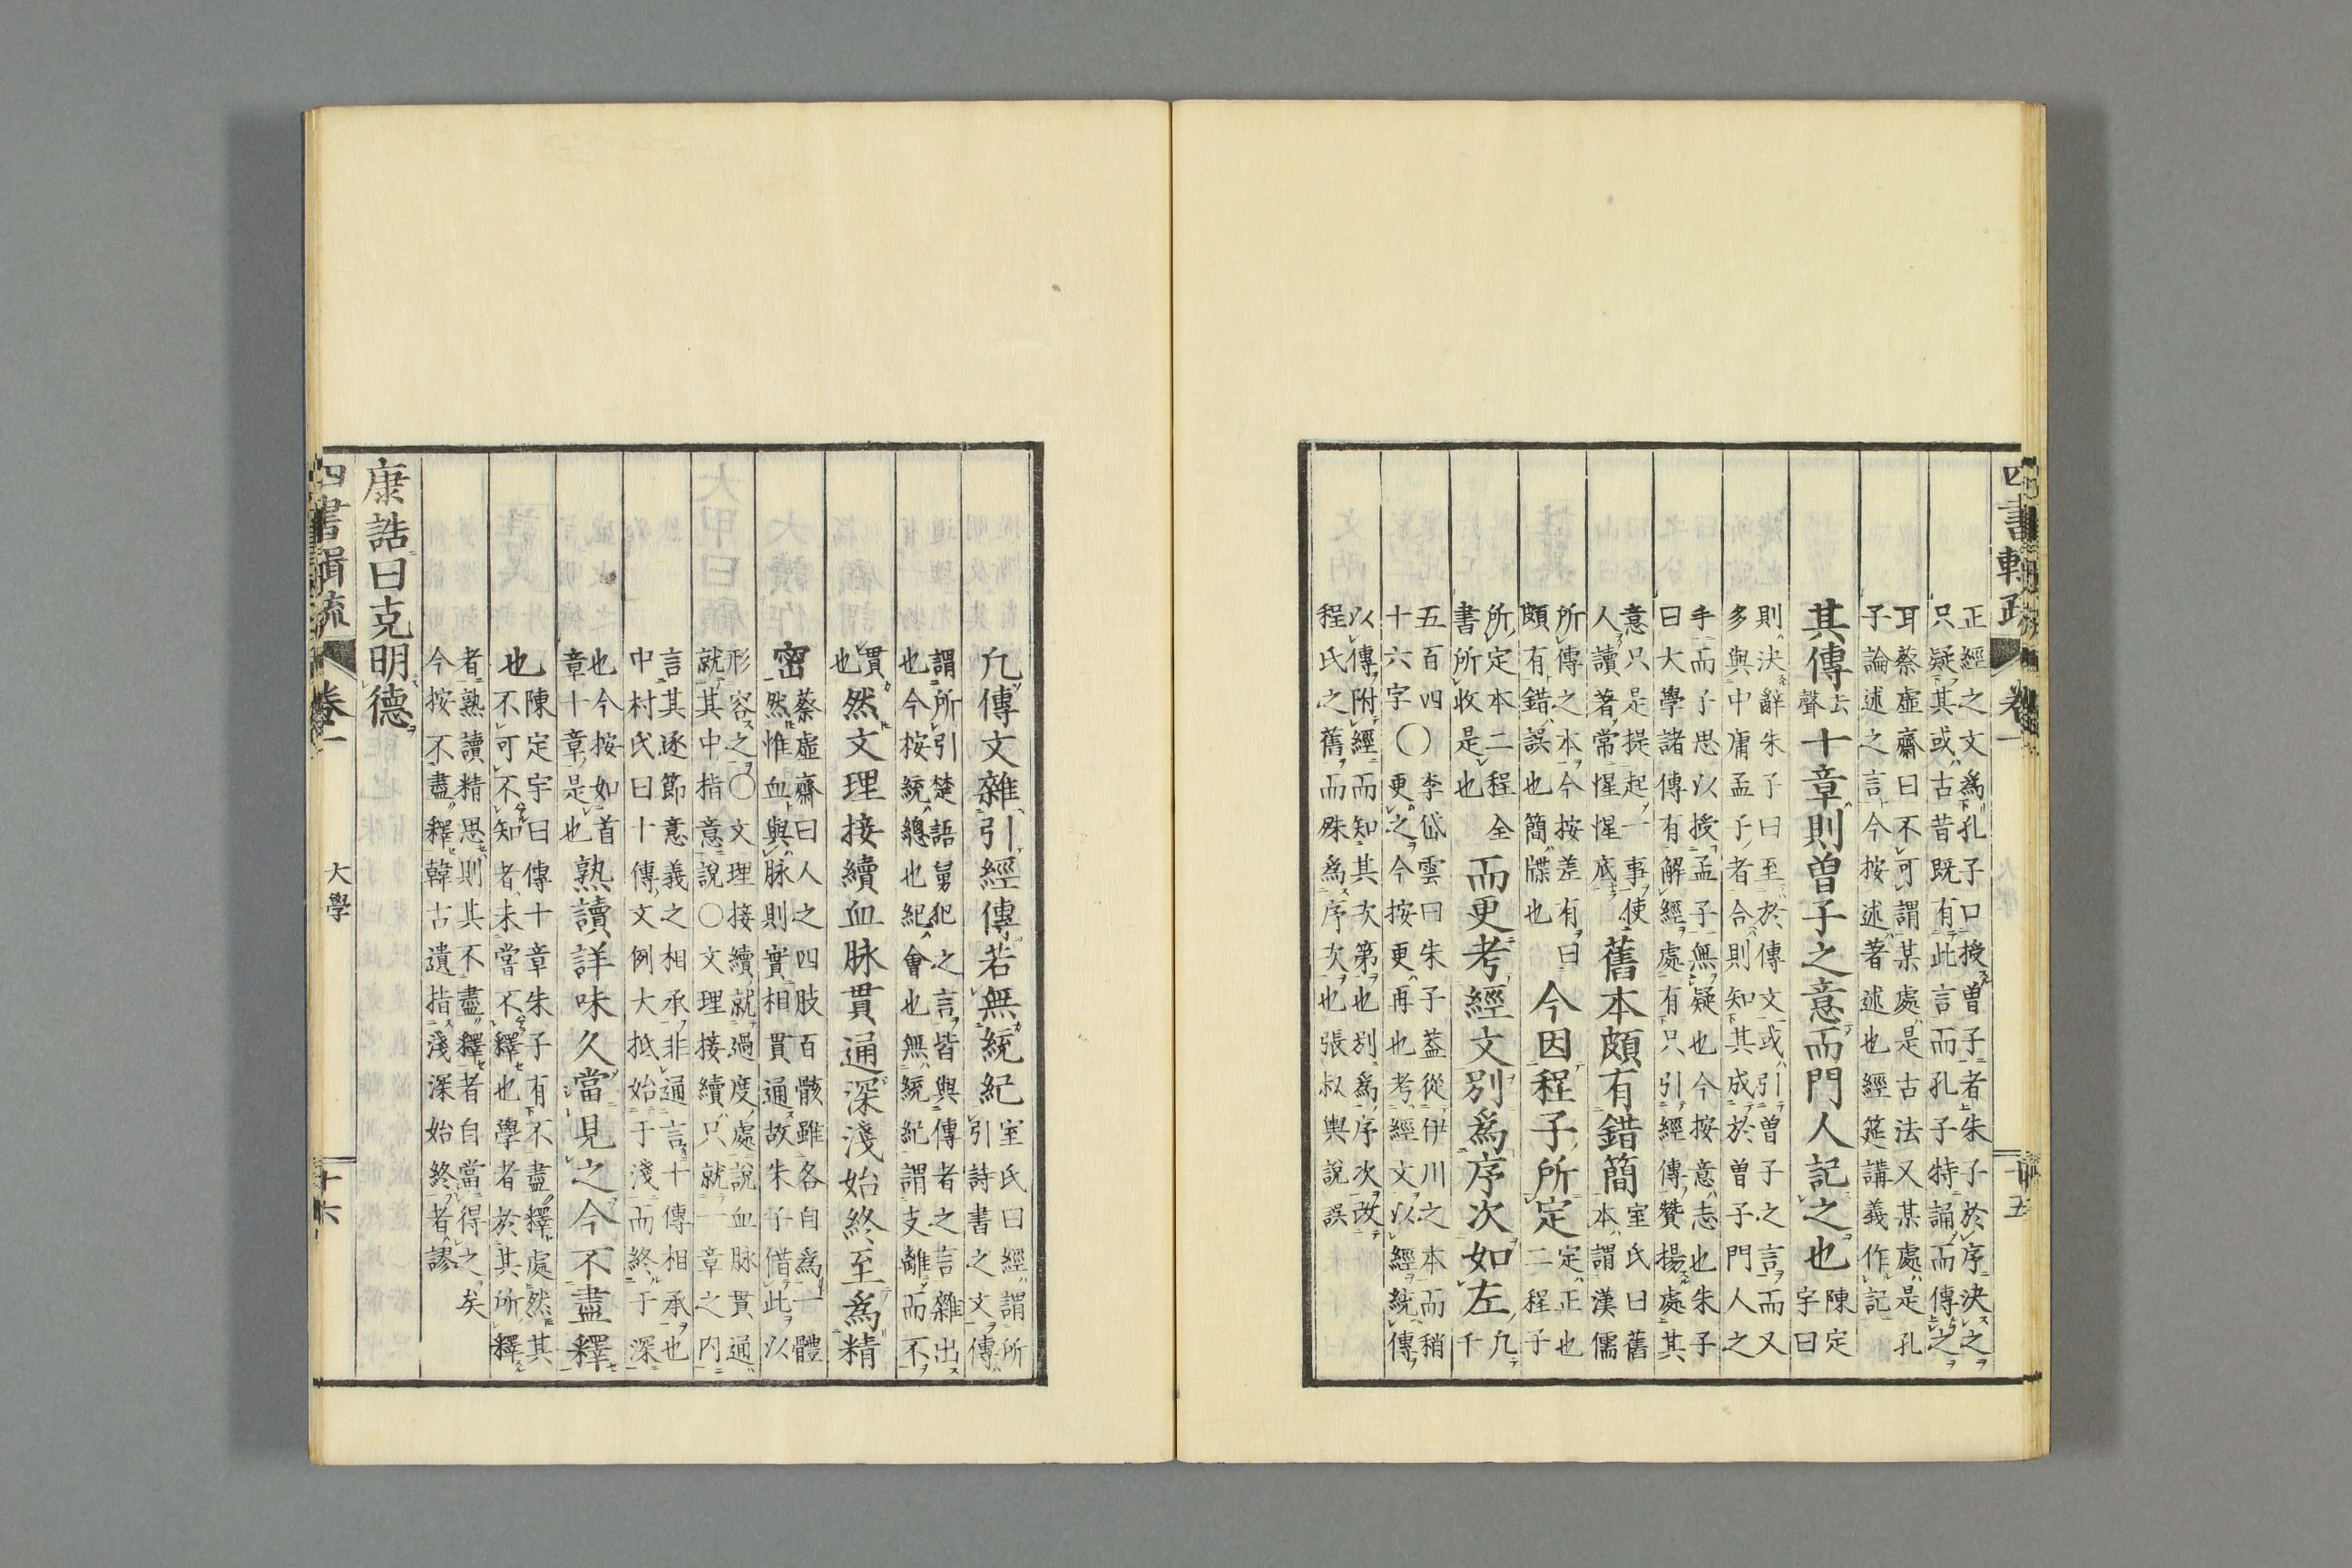 四書輯疏 卷一 十五
正經之文爲孔子口授曽子者朱子於序決之
只疑其或古昔既有此言而孔子特誦而傳之
耳蔡虛齋曰不可謂某處是古法又某處是孔
子論述之言今按述著述也經筵講義作記
其傳去聲十章則曽子之意而門人記之也陳定宇曰
則決辭朱子曰至於傳文或引曽子之言而又
多與中庸孟子者合則知其成於曽子門人之
手而子思以授孟子無疑也今按意志也朱子
曰大學諸傳有解經處有只引經傳贊揚處其
意只是提起一事使
人讀著常惺惺底
舊本頗有錯簡室氏曰舊
本謂漢儒
所傳之本今按差有曰
頗有錯誤也簡牒也
今因程子所定定正也
二程子
所定本二程全
書所收是也
而更考經文別爲序次如左凡
千
五百四
十六字〇
李岱雲曰朱子蓋從伊川之本而稍
更之今按更再也考經文以經統傳
以傳附經而知其次第也別爲序次改
程氏之舊而殊爲序次也張叔輿說誤
凡傳文雜引經傳若無統紀室氏曰經謂所
引詩書之文傳
謂所引楚語舅犯之言皆與傳者之言雜出
也今按統總也紀會也無統紀謂支離而不
貫
也
然文理接續血脉貫通深淺始終至爲精
密蔡虛齋曰人之四肢百骸雖各自爲一體
然惟血與脉則實相貫通故朱子借此以
形容之〇文理接續就過度處說血脉貫通
就其中指意說〇文理接續只就一章之内
言其逐節意義之相承非通言十傳相承也
中村氏曰十傳文例大抵始于淺而終于深
也今按如首
章十章是也
熟讀詳味久當見之今不盡釋
也陳定宇曰傳十章朱子有不盡釋處然其
不可不知者未嘗不釋也學者於其所釋
者熟讀精思則其不盡釋者自當得之矣
今按不盡釋韓古遺指淺深始終者謬
康誥曰克明德
四書輯疏 卷一 大學 十六